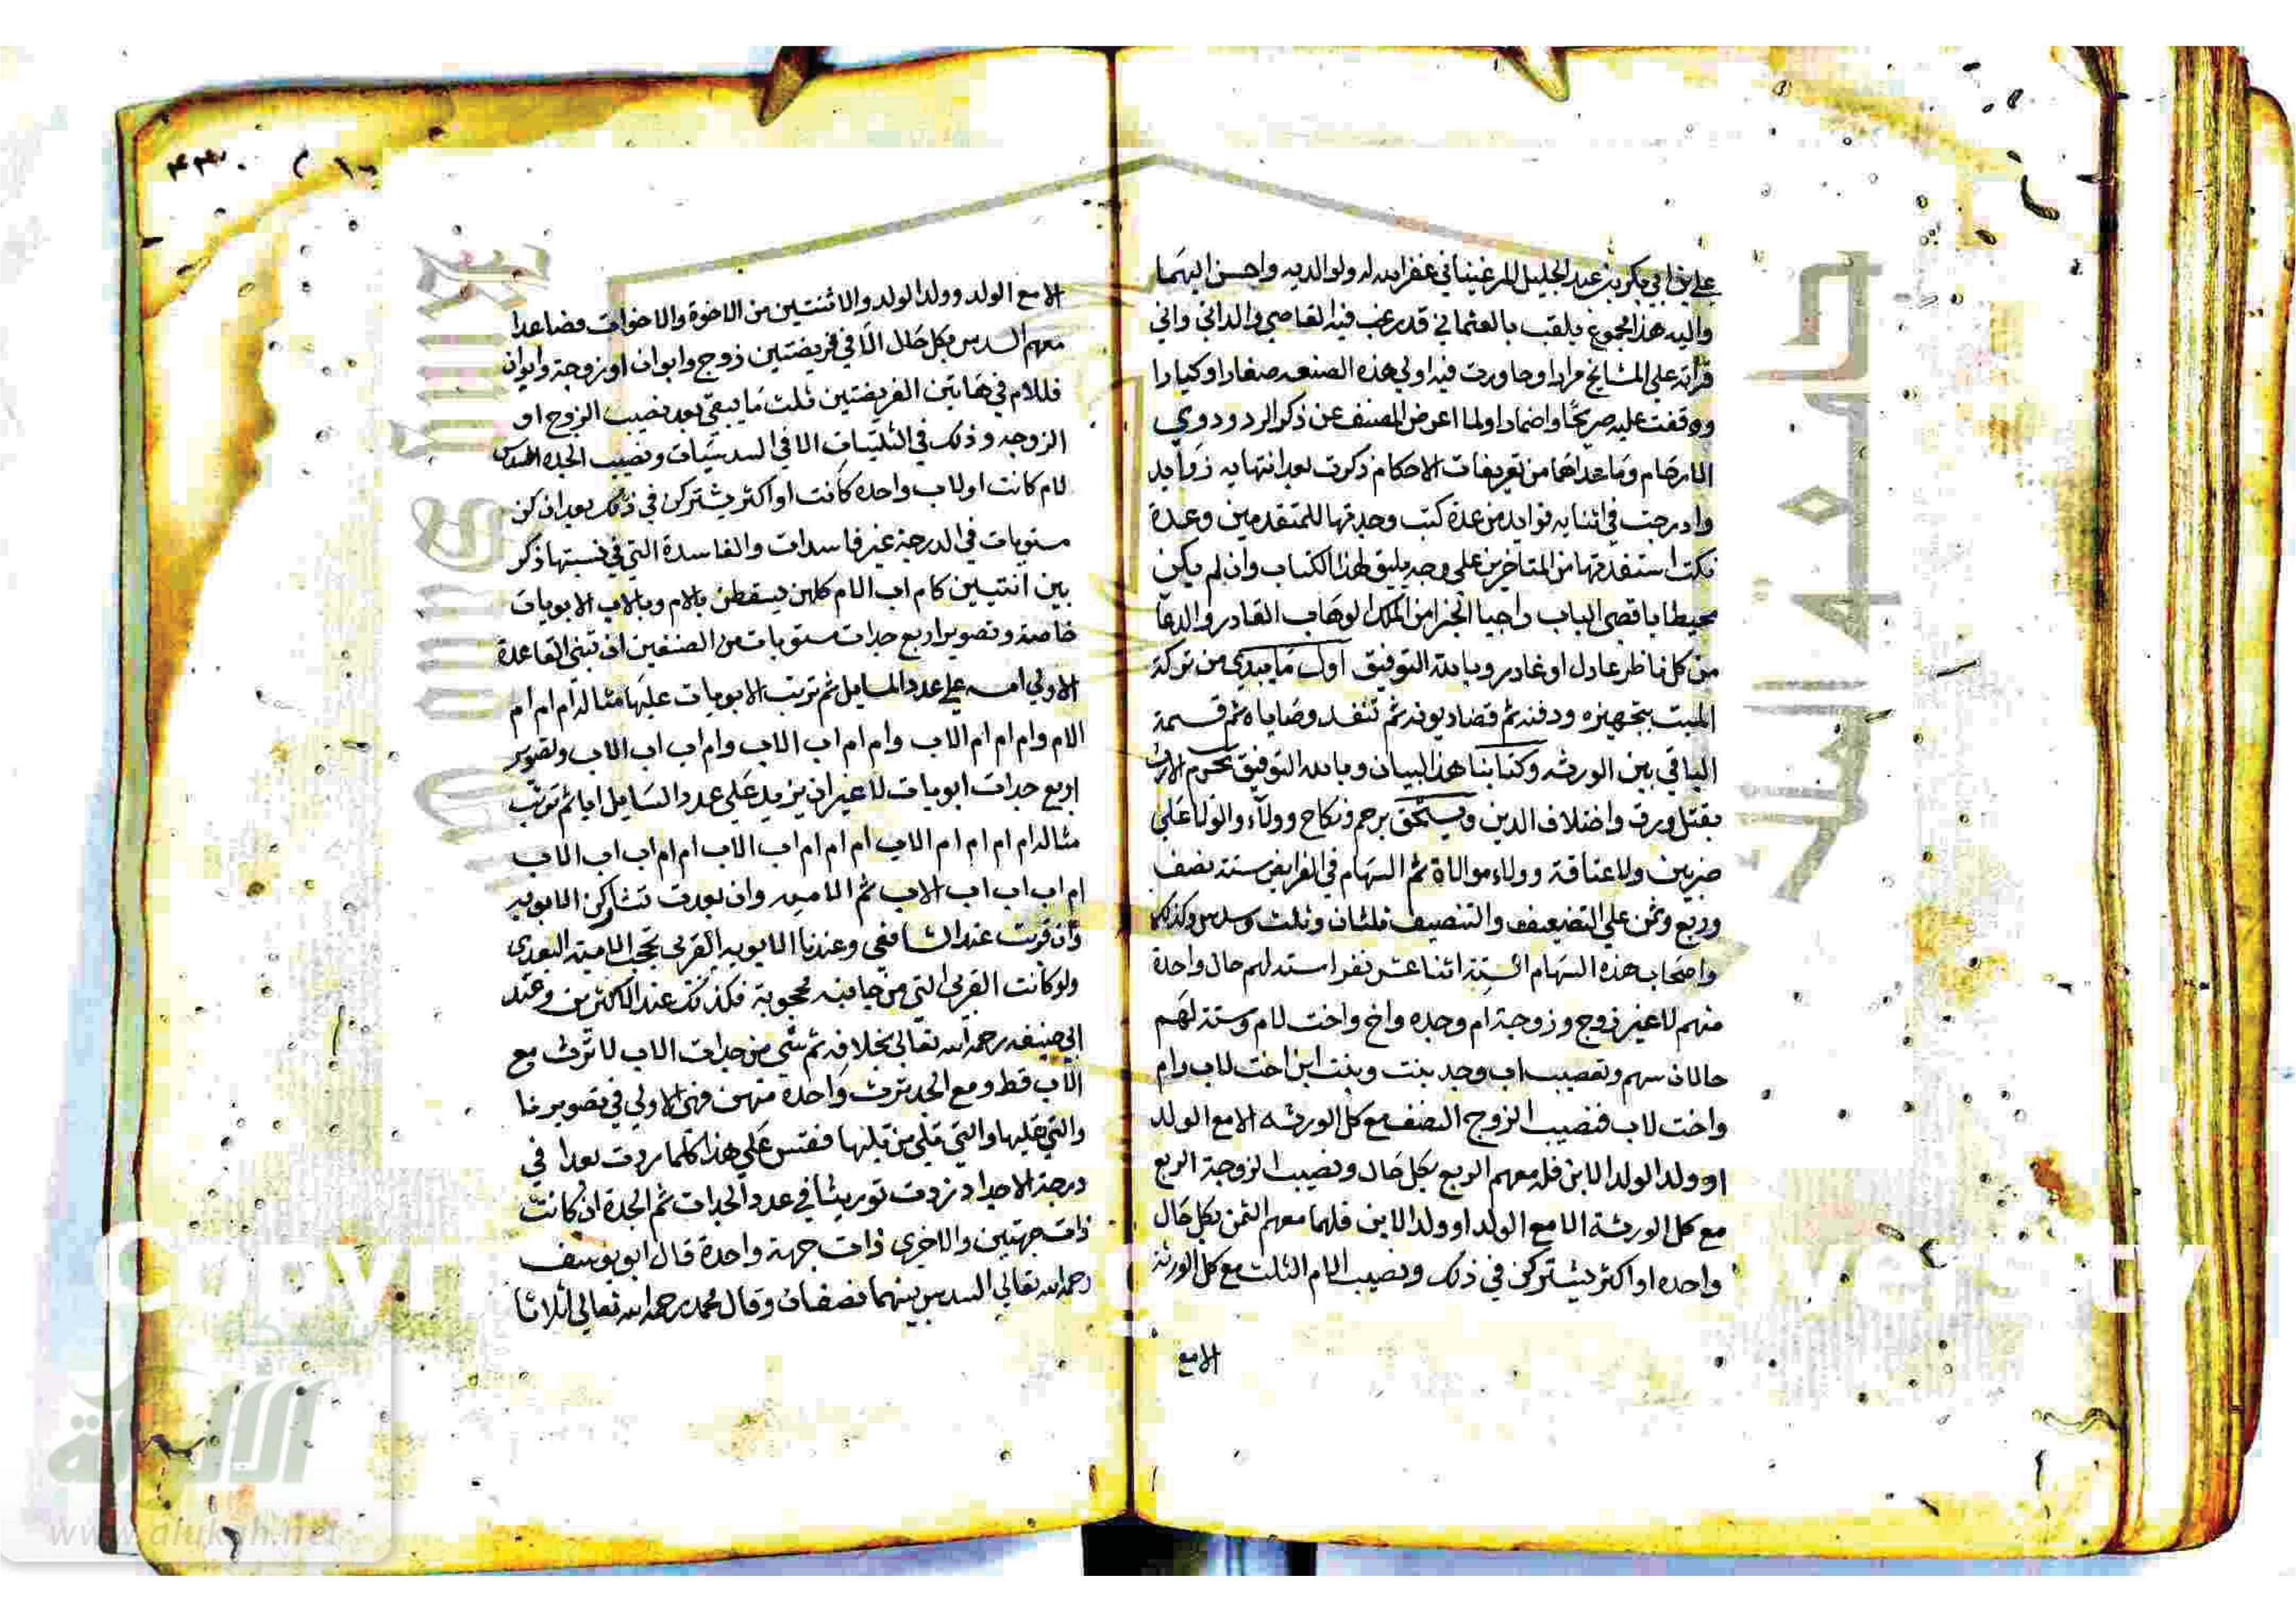 علي بن ابي بكر بن عبد الجليل المرغيناني غفر الله له ولوالديه واحسن اليهما
واليه هذا مجموع يلقب بالعثماني قد رغب فيه القاصي والداني واني
قراته على المشايخ مرارا وحاورت فيه اولي هذه الصنعه صغارا وكبارا
ووقفت عليه صريحا واضمارا ولما اعرض المصنف عن ذكر الرد وذوي
الارحام وما عداهما من تعريفات الاحكام ذكرت بعد انتهايه زوايد
وادرجت في اثنايه فوايد من عدة كتب وجدتها للمتقدمين وعدة
نكت استفدتها من المتاخرين على وجه يليق لهذا الكتاب وان لم يكن
محيطا باقصى الباب راجيا الجزا من الملك الوهاب القادر والدعا
من كل ناظر عادل او غادر وبالله التوفيق اول ما يبدي من تركة
الميت بتجهيزه ودفنه ثم قضا ديونه ثم تنفذ وصاياه ثم قسمة
الباقي بين الورثه وكتابنا هذا لبيان وبالله التوفيق يحرم الارث
بقتل ورق واختلاف الدين ويستحق برحم ونكاح وولاء والولا على
ضربين ولا عتاقة وولاء موالاة ثم السهام في الفرايض ستة نصف
وربع وثمن على التضعيف والتنصيف ثلثان وثلث وسدس وكذلك
واصحاب هذه السهام الستة اثنا عشر نفرا ستة لهم حال واحدة
منهم لا غير زوج وزوجة ام وجده واخ واخت لام وستة لهم
حالان سهم وتعصيب اب وجد بنت وبنت ابن اخت لاب وام
واخت لاب فنصيب الزوج النصف مع كل الورثه الا مع الولد
او ولد الولد الابن فله معهم الربع بكل حال ونصيب الزوجة الربع
مع كل الورثة الا مع الولد او ولد الابن فلهما معهم الثمن بكل حال
واحده او اكثر يشتركن في ذلك ونصيب الام الثلث مع كل الورثة
الا مع
الا مع الولد وولد الولد والاثنتين من الاخوة والاخوات فصاعدا
معهم السدس بكل حال الا في فريضتين زوج وابوان او زوجة وابوان
فللام في هاتين الفريضتين ثلث ما يبقى بعد نصيب الزوج او
الزوجه وذلك في الثلثيات الا في السدسيات ونصيب الجده السدس
لام كانت او لاب واحده كانت او اكثر يشتركن في ذلك بعد ان كن
مستويات في الدرجة غير فاسدات والفاسدة التي في نسبتها ذكر
بين انثيين كام اب الام كلهن يسقطن بالام وبالاب الابويات
خاصة وتصوير اربع جدات مستويات من الصنفين ان تبنى القاعدة
الاولى امه على عدد المسايل ثم ترتب الابويات عليها مثاله ام ام ام
الام وام ام ام الاب وام ام اب الاب وام اب اب الاب وتصوير
اربع جدات ابويات لا غير ان يزيد على عدد السايل ابا ثم ترتب
مثاله ام ام ام ام الاب ام ام ام اب الاب ام ام اب اب الاب
ام اب اب اب الاب ثم الاميه وان بعدت تشاركن الابويه
وان قربت عند الشافعي وعندنا الابويه القربى تحجب الاميه البعدى
ولو كانت القربى التي من جانبه محجوبة فكذلك عند الاكثرين وعند
ابي حنيفه رحمه الله تعالى بخلافه ثم شي من جدات الاب لا ترث مع
الاب قط ومع الجد ترث واحدة منهن فهي الاولى في تصويرنا
والتي تليها والتي تلي من تليها فقس على هذا كلما زدت بعدا في
درجة الاجداد زدت توريثا في عدد الجدات ثم الجدة ان كانت
ذات جهتين والاخرى ذات جهة واحدة قال ابو يوسف
رحمه الله تعالى السدس بينهما نصفان وقال محمد رحمه الله تعالى اثلاثا
جامعة الملك
الألوكة
www.alukah.net